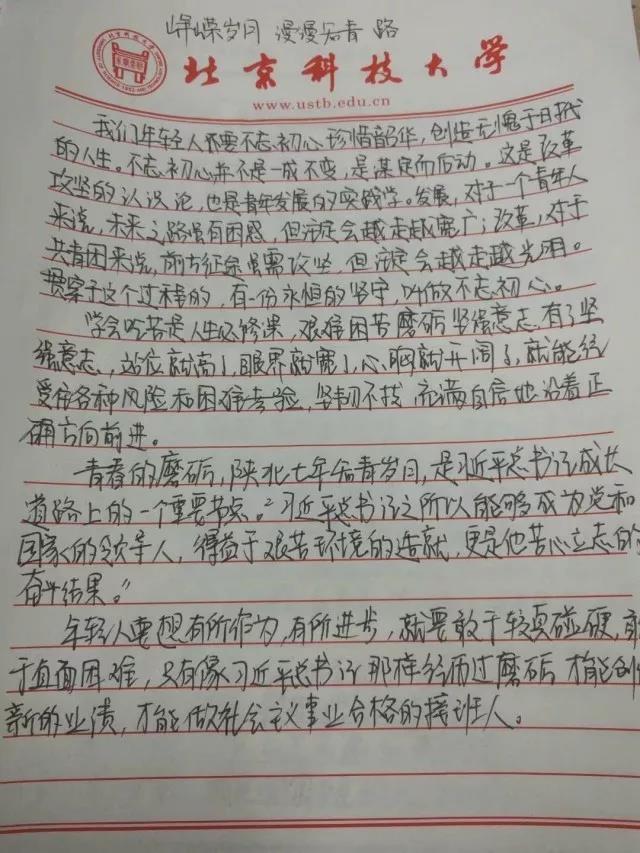 峥嵘岁月 漫漫知青路
北京科技大学
www.ustb.edu.cn
我们年轻人需要不忘初心珍惜韶华，创造无愧于时代
的人生。不忘初心并不是一成不变，是谋定而后动。这是改革
攻坚的认识论，也是青年发展的实践学。发展，对于一个青年人
来说，未来之路虽有困惑，但注定会越走越宽广；改革，对于
共青团来说，前方征途虽需攻坚，但注定会越走越光明。
贯穿于这个过程的，有一份永恒的坚守，叫做不忘初心。
学会吃苦是人生必修课，艰难困苦磨砺坚强意志，有了坚
强意志，站位就高了，眼界就宽了，心胸就开阔了，就能经
受住各种风险和困难考验，坚韧不拔，充满自信地沿着正
确方向前进。
青春的磨砺，陕北七年知青岁月，是习近平总书记成长
道路上的一个重要节点。“习近平总书记之所以能够成为党和
国家的领导人，得益于艰苦环境的造就，更是他苦心立志的
奋斗结果。”
年轻人要想有所作为，有所进步，就要敢于较真碰硬，敢
于直面困难，只有像习近平总书记那样经历过磨砺才能创
新的业绩，才能做社会主义事业合格的接班人。